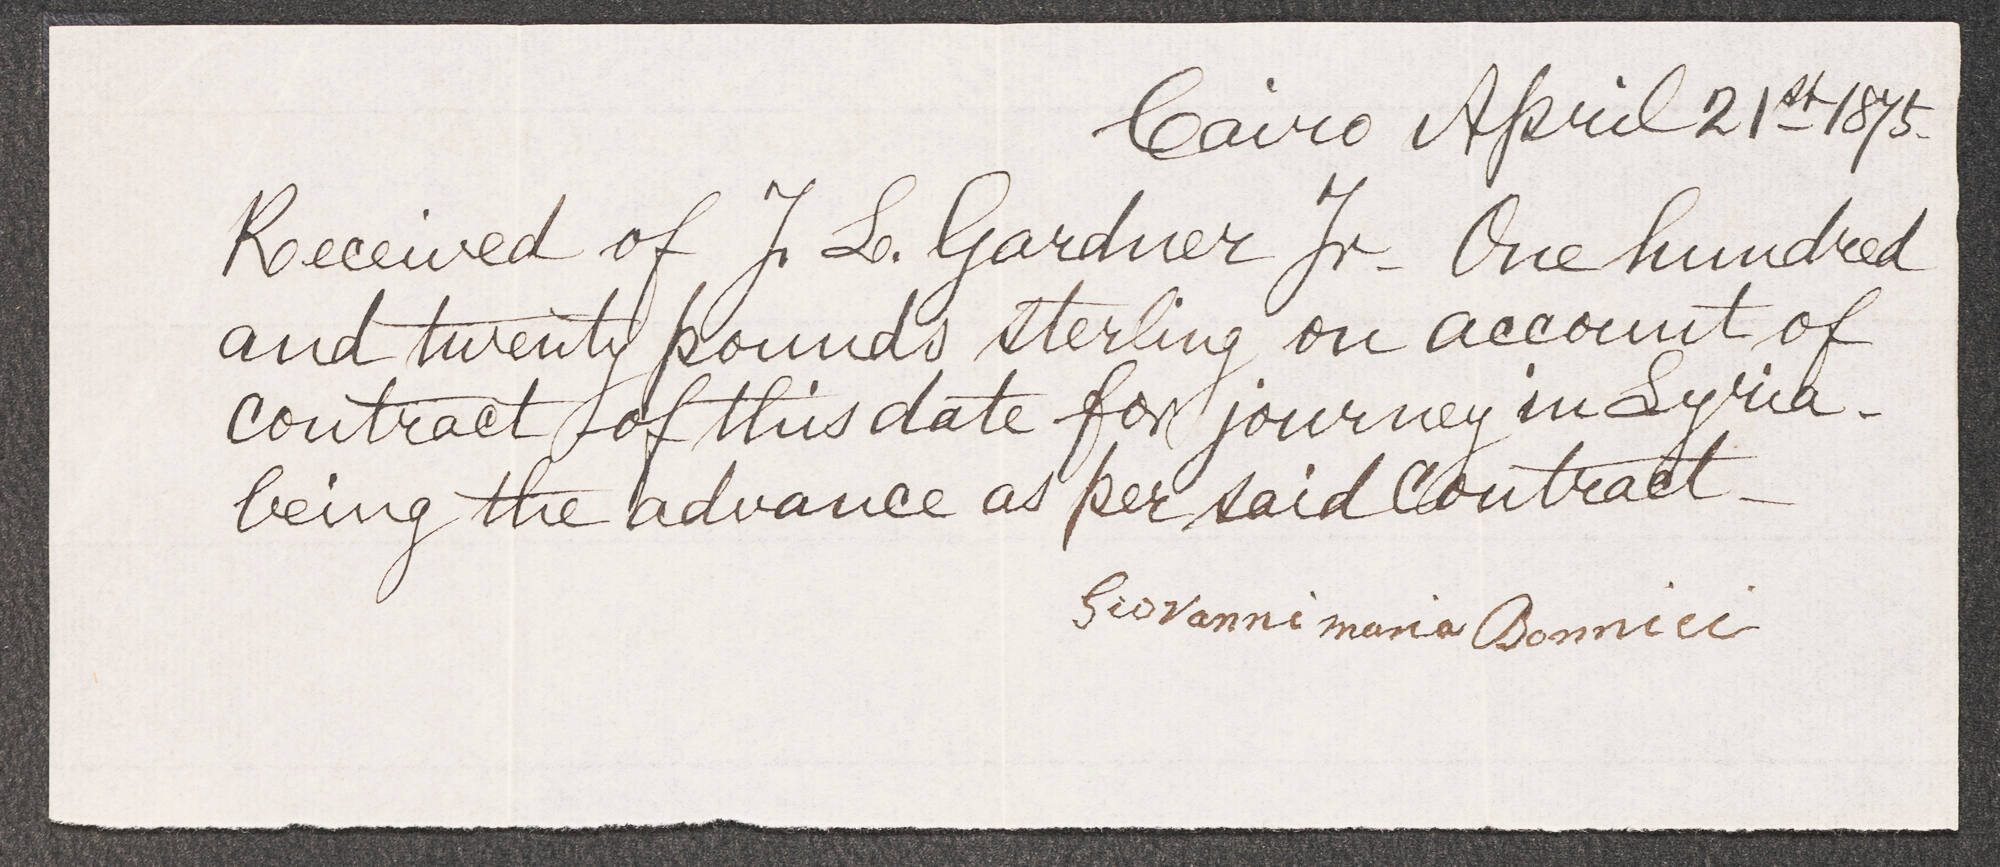 Cairo April 21st 1875.
Received of J. L. Gardner Jr - One hundred
and twenty pounds sterling on account of
contract of this date for journey in Syria -
being the advance as per said Contract -
Giovanni maria Bonnici